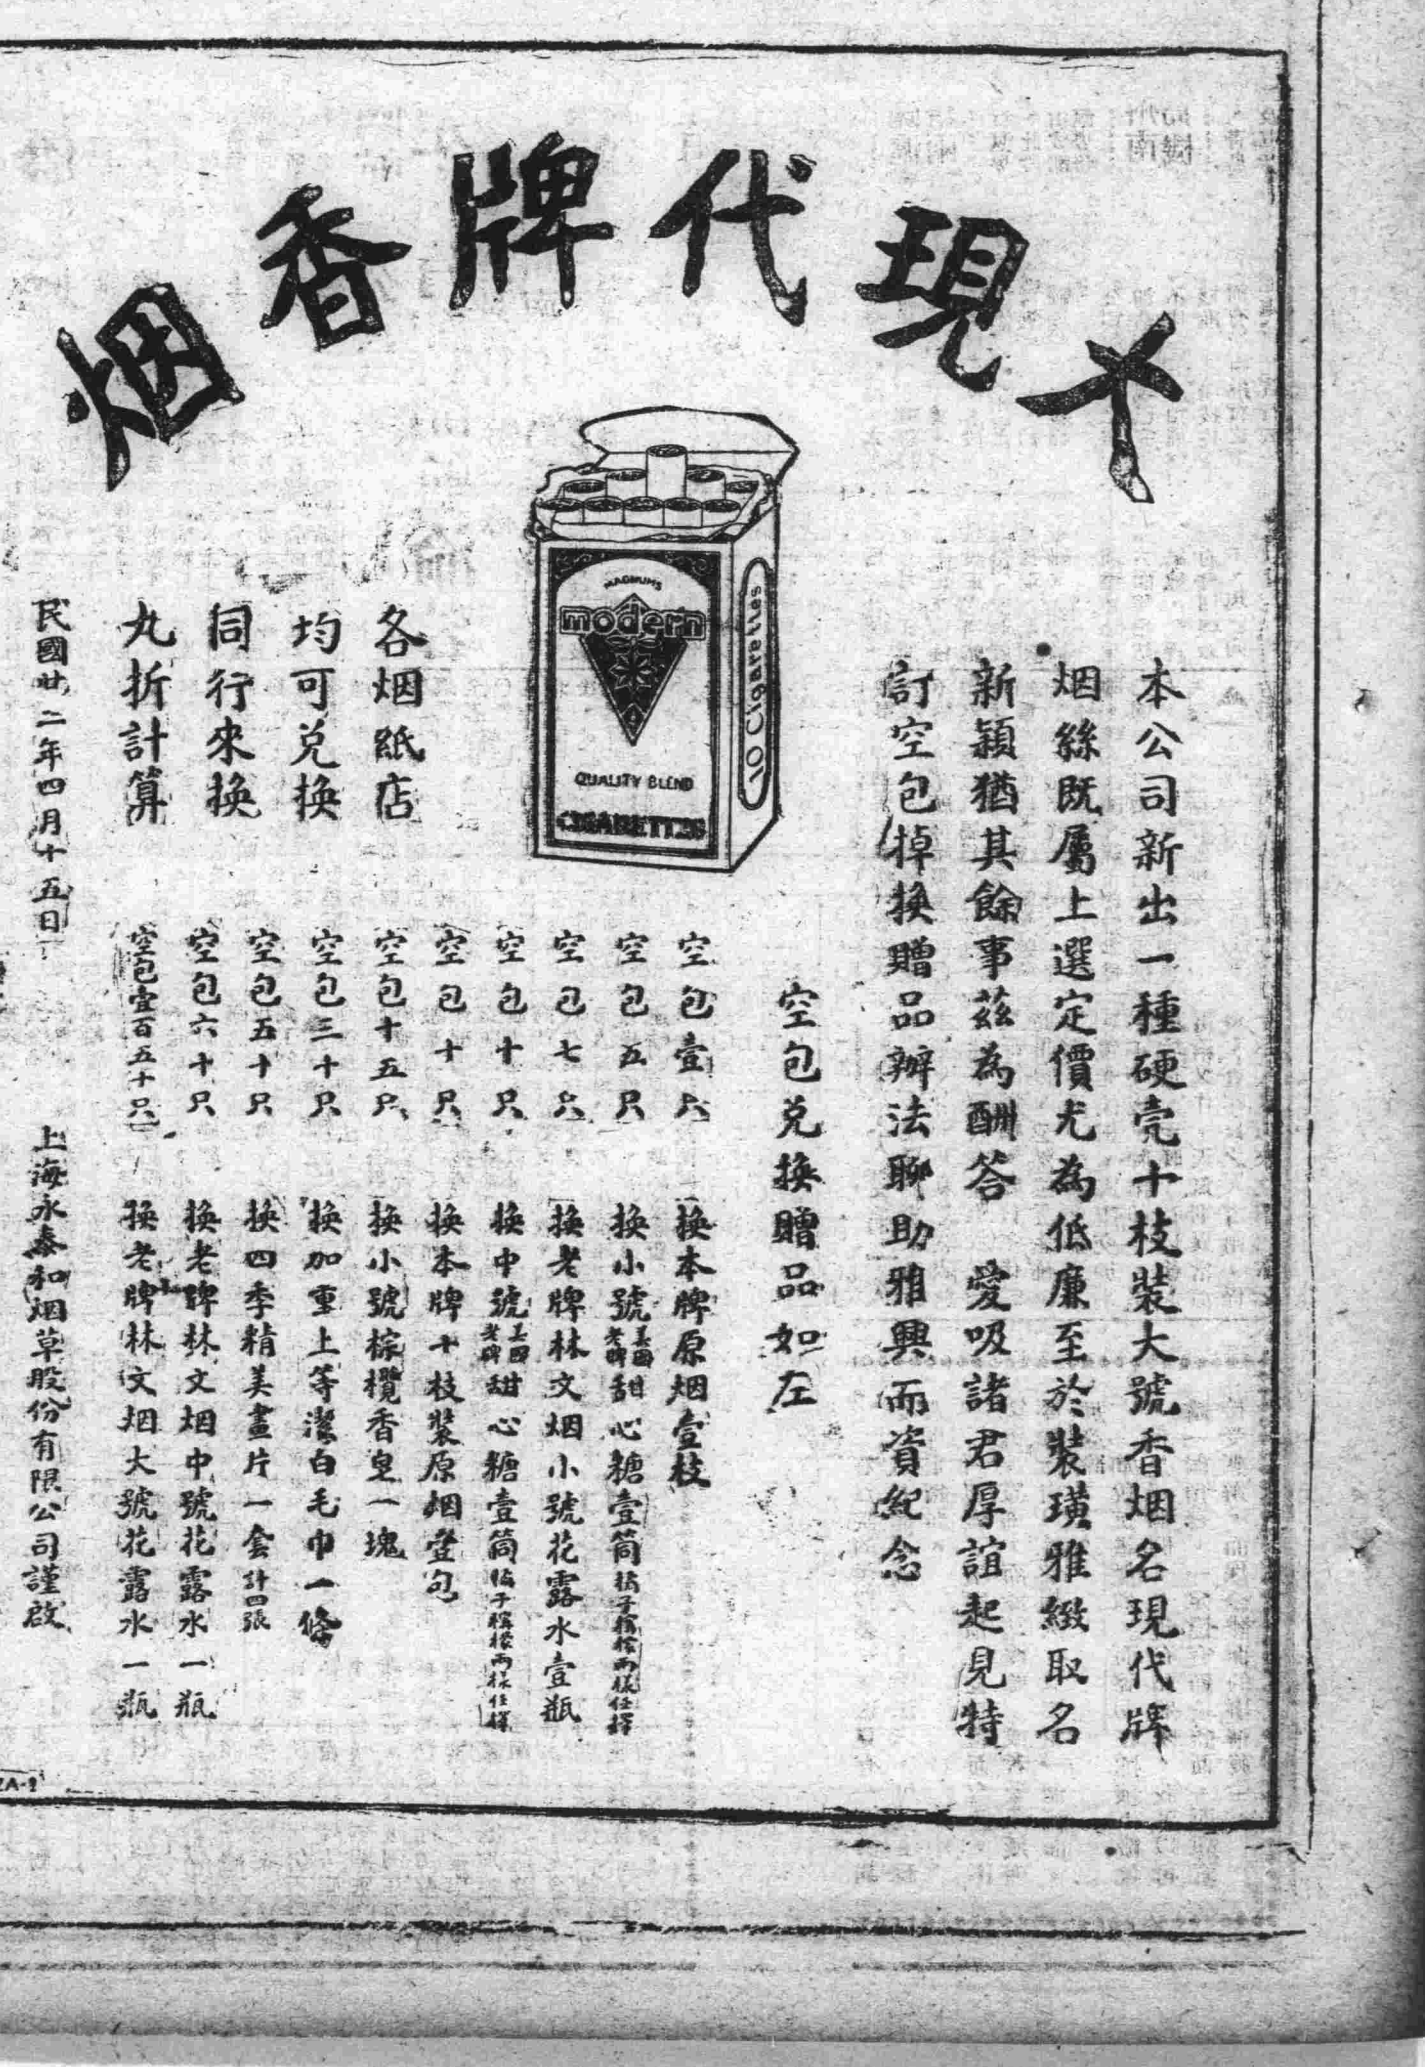 丫現代牌香烟
MAGNUMS
modern
QUALITY BLEND
CIGARETTES
10 Cigarettes
本公司新出一種硬壳十枝裝大號香烟名現代牌
烟絲既屬上選定價尤為低廉至於裝璜雅緻取名
新穎猶其餘事茲為酬答 愛吸諸君厚誼起見特
訂空包掉換贈品辦法聊助雅興而資紀念
空包兑換贈品如左
空包壹只 換本牌原烟壹枝
空包五只 換小號美國老牌甜心糖壹筒 橘子檸檬兩樣任擇
空包七只 換老牌林文烟小號花露水壹瓶
空包十只 換中號美國老牌甜心糖壹筒 橘子檸檬兩樣任擇
空包十只 換本牌十枝裝原烟壹包
空包十五只 換小號棕欖香皂一塊
空包三十只 換加重上等潔白毛巾一條
空包五十只 換四季精美畫片一套 計四張
空包六十只 換老牌林文烟中號花露水一瓶
空包壹百五十只 換老牌林文烟大號花露水一瓶
各烟紙店
均可兑換
同行來換
九折計算
民國廿二年四月十五日
上海永泰和烟草股份有限公司謹啟